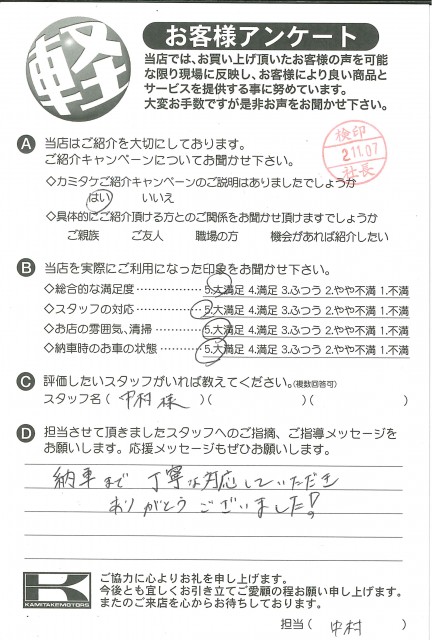 軽
お客様アンケート
当店では、お買い上げ頂いたお客様の声を可能
な限り現場に反映し、お客様により良い商品と
サービスを提供する事に努めています。
大変お手数ですが是非お声をお聞かせ下さい。
A 当店はご紹介を大切にしております。
ご紹介キャンペーンについてお聞かせ下さい。
検印
2.11.07
社長
◇カミタケご紹介キャンペーンのご説明はありましたでしょうか
はい いいえ
◇具体的にご紹介頂ける方とのご関係をお聞かせ頂けますでしょうか
ご親族 ご友人 職場の方 機会があれば紹介したい
B 当店を実際にご利用になった印象をお聞かせ下さい。
◇総合的な満足度……………… 5.大満足 4.満足 3.ふつう 2.やや不満 1.不満
◇スタッフの対応……………… 5.大満足 4.満足 3.ふつう 2.やや不満 1.不満
◇お店の雰囲気、清掃………… 5.大満足 4.満足 3.ふつう 2.やや不満 1.不満
◇納車時のお車の状態………… 5.大満足 4.満足 3.ふつう 2.やや不満 1.不満
C 評価したいスタッフがいれば教えてください。(複数回答可)
スタッフ名( 中村様 )( )( )
D 担当させて頂きましたスタッフへのご指摘、ご指導メッセージを
お願いします。応援メッセージもぜひお願いします。
納車まで 丁寧な対応していただき
ありがとうございました!
K
KAMITAKEMOTORS
ご協力に心よりお礼を申し上げます。
今後とも宜しくお引き立てご愛顧の程お願い申し上げます。
またのご来店を心からお待ちしております。
担当( 中村 )